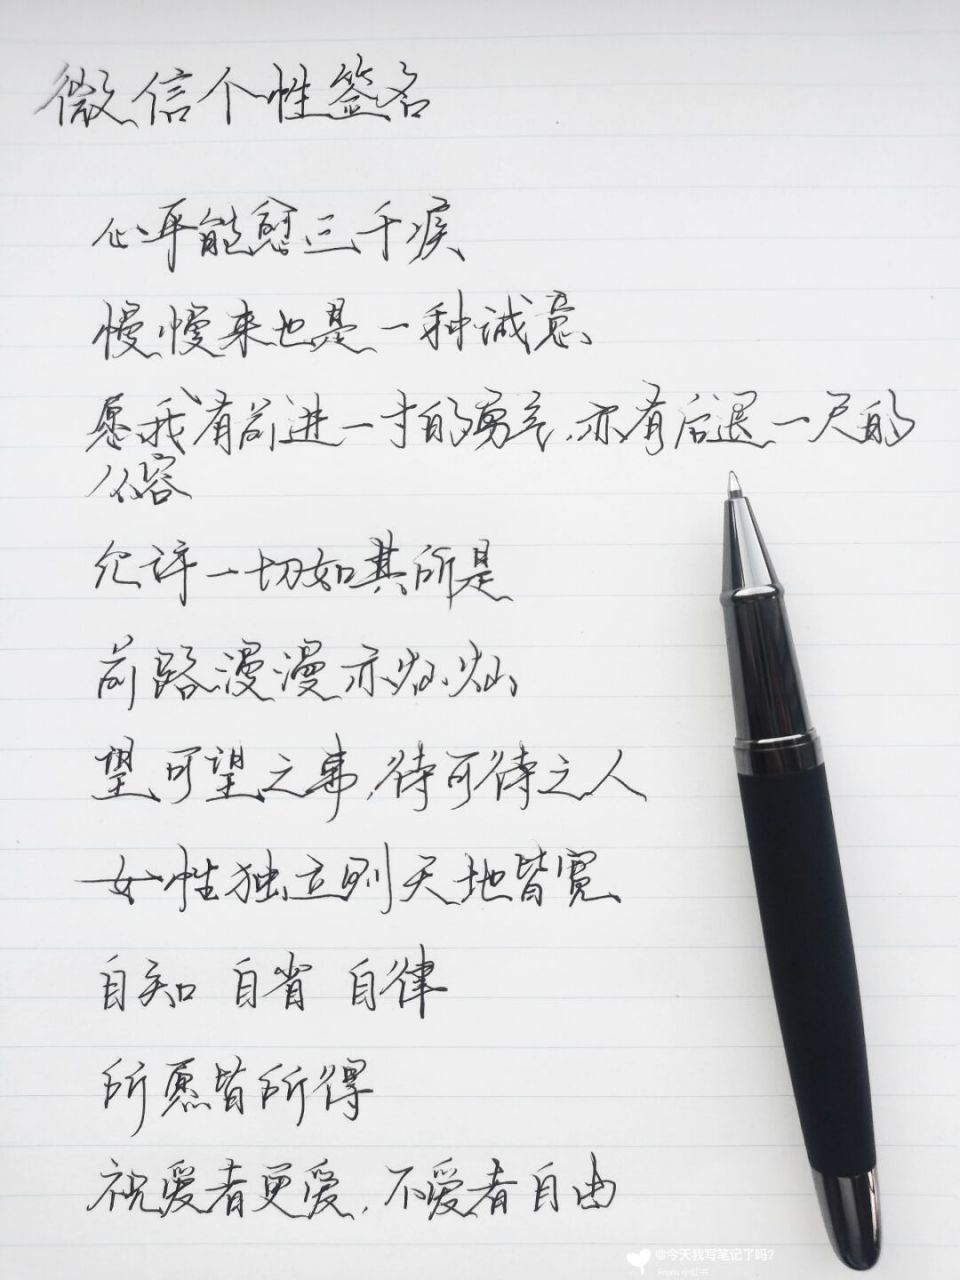 微信个性签名
心平能愈三千疾
慢慢来也是一种诚意
愿我有前进一寸的勇气,亦有后退一尺的
从容
允许一切如其所是
前路漫漫亦灿灿
望可望之事,待可待之人
女性独立则天地皆宽
自知 自省 自律
所愿皆所得
祝爱者更爱,不爱者自由
@今天我写笔记了吗?
From 小红书